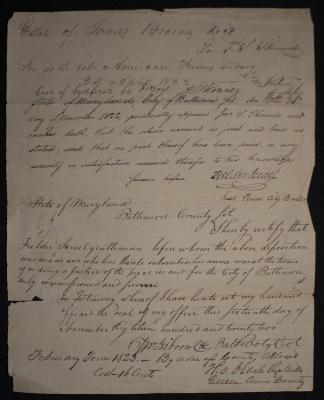 Estate of James Brown decd
To J. S. Skinner
For 4th Vol American Farmer ending
2d of April 1822
State of Maryland, City of Baltimore Sct. On this
day of November 1822, personally appears Jno. S. Skinner and
makes oath, that the above account is just and true as
stated, and that no part thereof has been paid, or any
security or satisfaction received therefor to his knowledge
Sworn before
Fielder Israel
Just. Peace City Balto
State of Maryland
Baltimore County Sct
I hereby certify that
Fielder Israel gentleman before whom the above deposition
was made and who has thereto subscribed his name was at the time
of so doing a Justice of the peace in and for the City of Baltimore
duly commissioned and sworn
In Testimony whereof I have hereto set my hand and
affixed the seal of my office this fifteenth day of
November Eighteen hundred and twenty two
Wm Gibson Clk Balto Coty Cot
February Term 1823.— By order of County
Cost 16 Cent
Queen Anns County